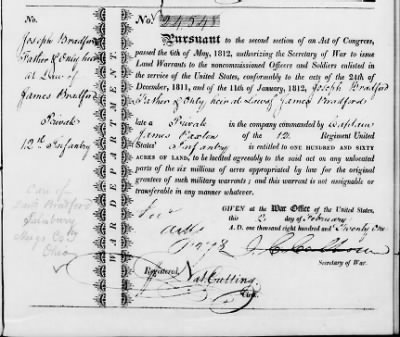 No.
No. 24548
Joseph Bradford
Father & Only heir
at Law of
James Bradford
Private
12th Infantry
WAR DEPARTMENT.
Pursuant to the second section of an Act of Congress,
passed the 6th of May, 1812, authorizing the Secretary of War to issue
Land Warrants to the noncommissioned Officers and Soldiers enlisted in
the service of the United States, conformably to the acts of the 24th of
December, 1811, and of the 11th of January, 1812, Joseph Bradford
Father & Only heir at Law of James Bradford
late a Private in the company commanded by Captain
James Paxton of the 12 Regiment United
States' Infantry is entitled to ONE HUNDRED AND SIXTY
ACRES OF LAND, to be located agreeably to the said act on any unlocated
parts of the six millions of acres appropriated by law for the original
grantees of such military warrants; and this warrant is not assignable or
transferable in any manner whatever.
GIVEN at the War Office of the United States,
this 2 day of February
A. D. one thousand eight hundred and Twenty One
J. C. Calhoun
Secretary of War.
Registered, Nat Cutting
Clerk.
Care of
Bradford
Ohio